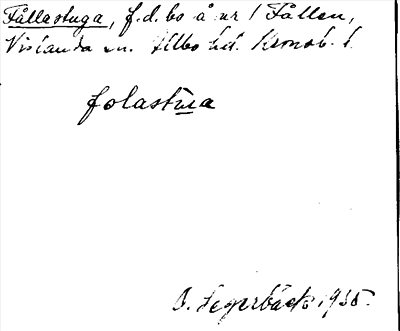 Fållastuga, f.d. bs å nr 1 Fållen,
Vislanda sn. Allbo hd. Kronob. l.
folastua
B. Segerbäck 1935.